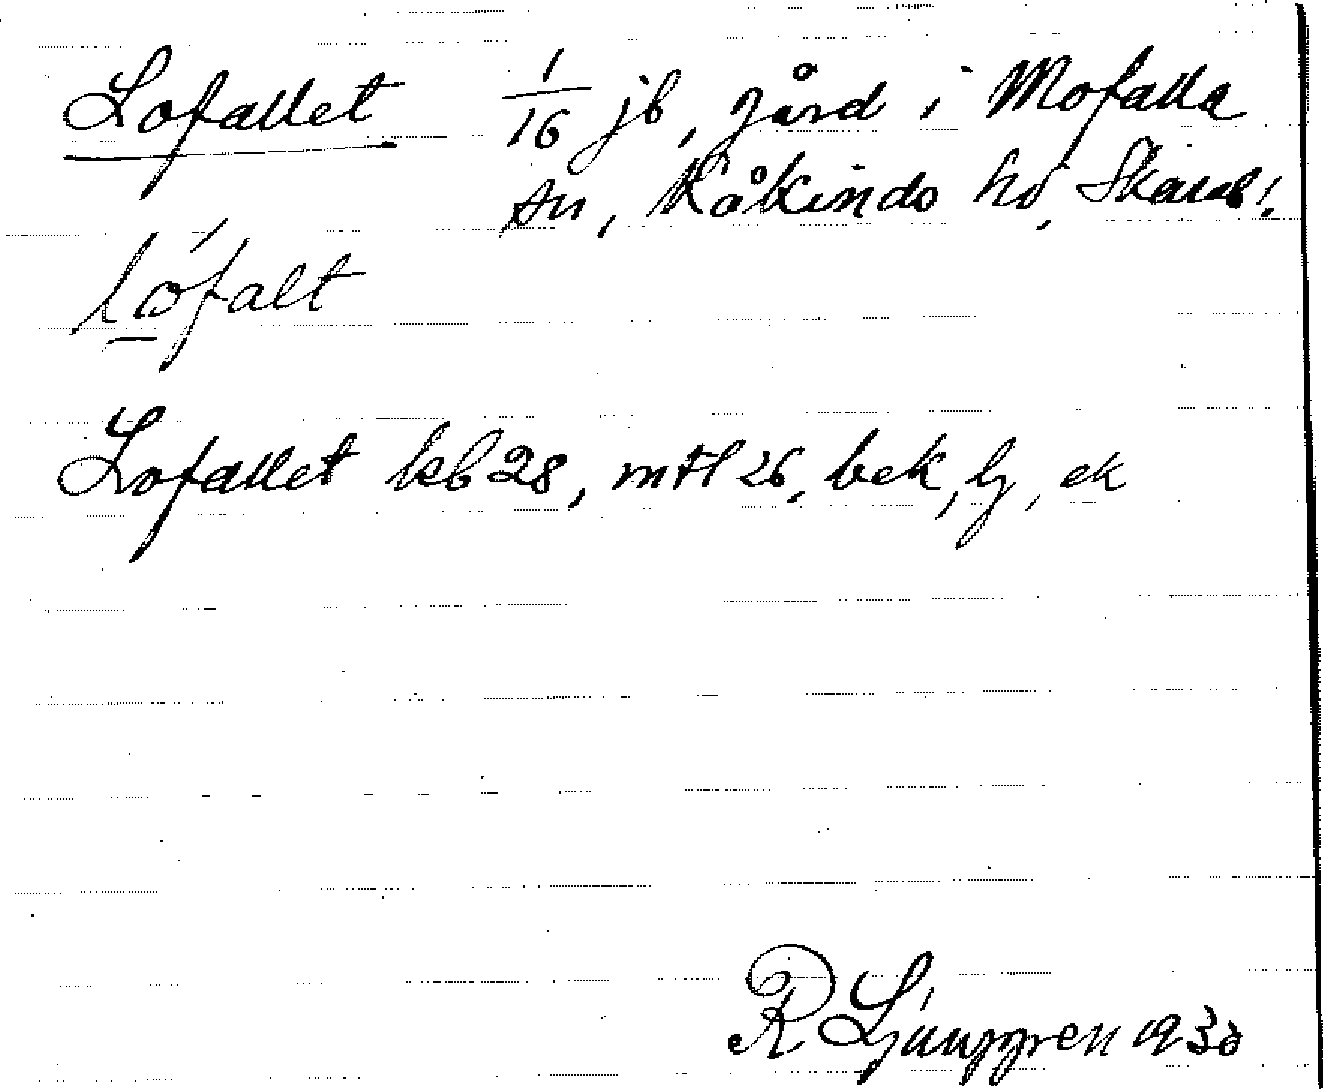 Lofallet 1/16 jb, gård i Mofalla
sn, Kåkinds hd, Skarab. l.
lófalt
Lofallet kb 28, mtl 26, bek, lj, ek
R Ljunggren 1930